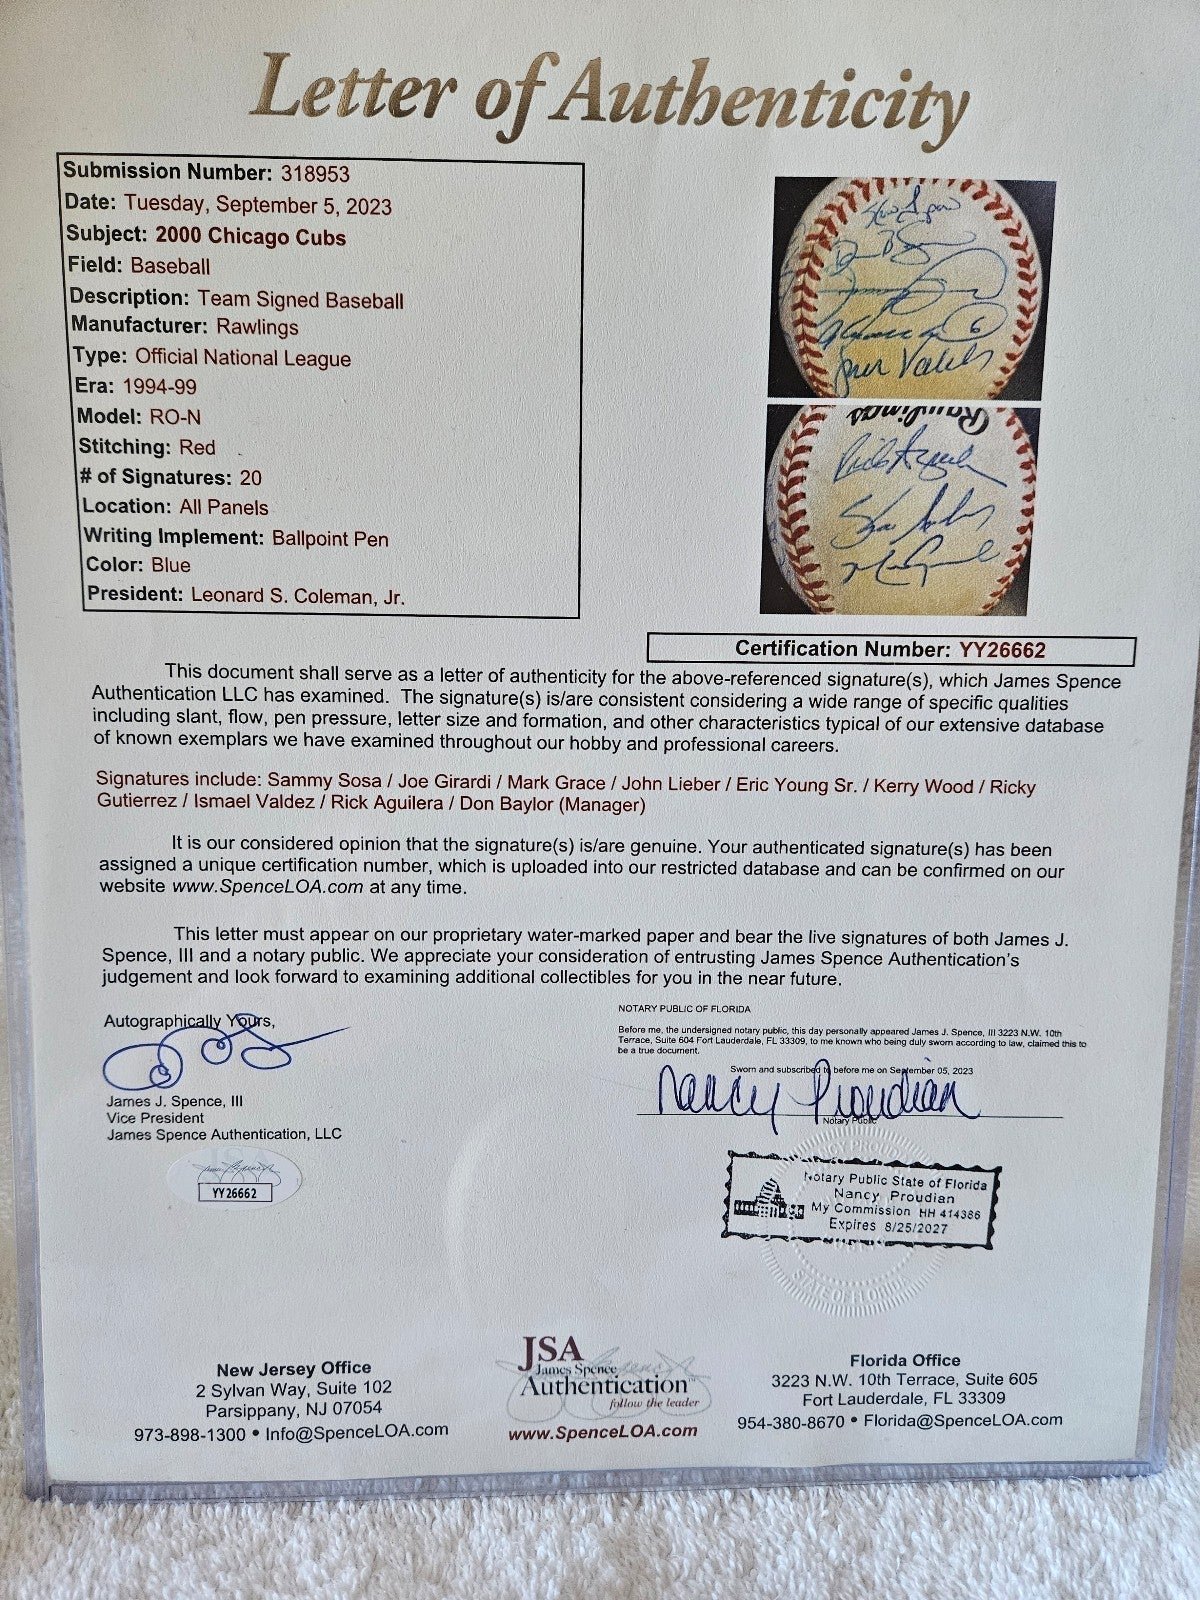 Letter of Authenticity
Submission Number: 318953
Date: Tuesday, September 5, 2023
Subject: 2000 Chicago Cubs
Field: Baseball
Description: Team Signed Baseball
Manufacturer: Rawlings
Type: Official National League
Era: 1994-99
Model: RO-N
Stitching: Red
# of Signatures: 20
Location: All Panels
Writing Implement: Ballpoint Pen
Color: Blue
President: Leonard S. Coleman, Jr.
6
Rawlings
Certification Number: YY26662
This document shall serve as a letter of authenticity for the above-referenced signature(s), which James Spence
Authentication LLC has examined. The signature(s) is/are consistent considering a wide range of specific qualities
including slant, flow, pen pressure, letter size and formation, and other characteristics typical of our extensive database
of known exemplars we have examined throughout our hobby and professional careers.
Signatures include: Sammy Sosa / Joe Girardi / Mark Grace / John Lieber / Eric Young Sr. / Kerry Wood / Ricky
Gutierrez / Ismael Valdez / Rick Aguilera / Don Baylor (Manager)
It is our considered opinion that the signature(s) is/are genuine. Your authenticated signature(s) has been
assigned a unique certification number, which is uploaded into our restricted database and can be confirmed on our
website www.SpenceLOA.com at any time.
This letter must appear on our proprietary water-marked paper and bear the live signatures of both James J.
Spence, III and a notary public. We appreciate your consideration of entrusting James Spence Authentication's
judgement and look forward to examining additional collectibles for you in the near future.
Autographically Yours,
James J. Spence, III
Vice President
James Spence Authentication, LLC
YY26662
NOTARY PUBLIC OF FLORIDA
Before me, the undersigned notary public, this day personally appeared James J. Spence, III 3223 N.W. 10th
Terrace, Suite 604 Fort Lauderdale, FL 33309, to me known who being duly sworn according to law, claimed this to
be a true document.
Sworn and subscribed to before me on September 05, 2023
Nancy Proudian
Notary Public
Notary Public State of Florida
Nancy Proudian
My Commission HH 414386
Expires 8/25/2027
STATE OF FLORIDA
New Jersey Office
2 Sylvan Way, Suite 102
Parsippany, NJ 07054
973-898-1300 • Info@SpenceLOA.com
JSA
James Spence
Authentication™
follow the leader
www.SpenceLOA.com
Florida Office
3223 N.W. 10th Terrace, Suite 605
Fort Lauderdale, FL 33309
954-380-8670 • Florida@SpenceLOA.com